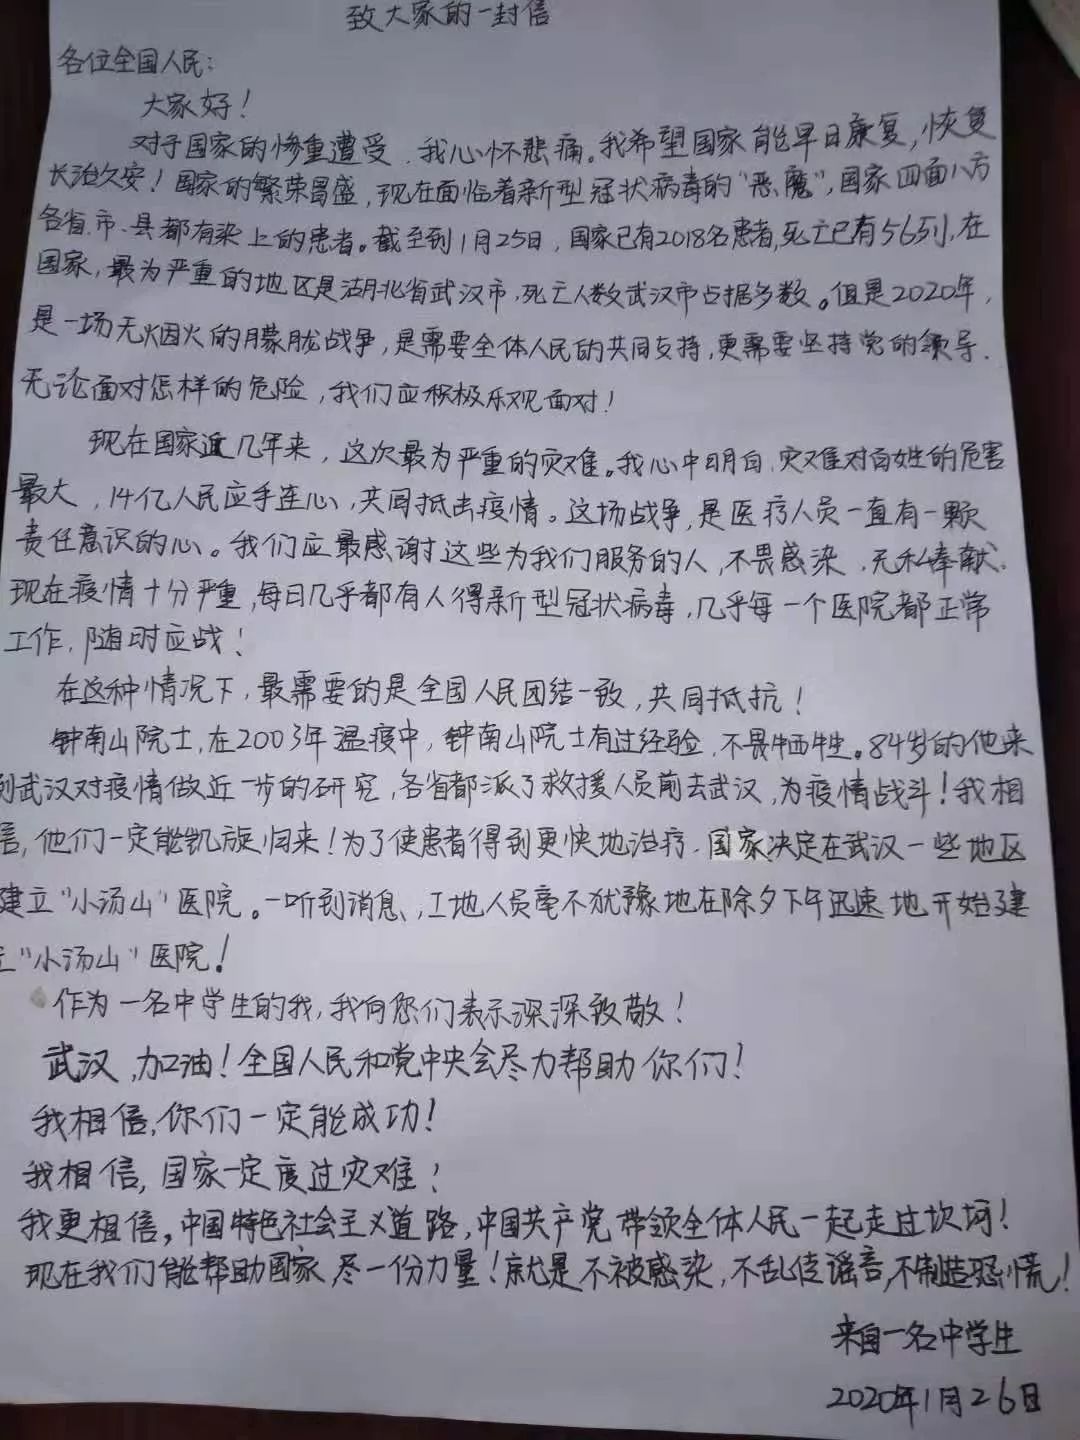 致大家的一封信
各位全国人民：
大家好！
对于国家的惨重遭受，我心怀悲痛。我希望国家能早日康复，恢复
长治久安！国家的繁荣昌盛，现在面临着新型冠状病毒的“恶魔”，国家四面八方
各省、市、县都有染上的患者。截至到1月25日，国家已有2018名患者，死亡已有56列，在
国家，最为严重的地区是湖北省武汉市，死亡人数武汉市占据多数。但是2020年，
是一场无烟火的朦胧战争，是需要全体人民的共同支持，更需要坚持党的领导，
无论面对怎样的危险，我们应积极乐观面对！
现在国家近几年来，这次最为严重的灾难。我心中明白，灾难对百姓的危害
最大，14亿人民应手连心，共同抵击疫情。这场战争，是医疗人员一直有一颗
责任意识的心。我们应最感谢这些为我们服务的人，不畏感染，无私奉献，
现在疫情十分严重，每日几乎都有人得新型冠状病毒，几乎每一个医院都正常
工作，随时应战！
在这种情况下，最需要的是全国人民团结一致，共同抵抗！
钟南山院士，在2003年温疫中，钟南山院士有过经验，不畏牺牲。84岁的他来
到武汉对疫情做近一步的研究，各省都派了救援人员前去武汉，为疫情战斗！我相
信，他们一定能凯旋归来！为了使患者得到更快地治疗，国家决定在武汉一些地区
建立“小汤山”医院。一听到消息，工地人员毫不犹豫地在除夕下午迅速地开始建
立“小汤山”医院！
作为一名中学生的我，我向您们表示深深致敬！
武汉，加油！全国人民和党中央会尽力帮助你们！
我相信，你们一定能成功！
我相信，国家一定度过灾难！
我更相信，中国特色社会主义道路，中国共产党带领全体人民一起走过坎坷！
现在我们能帮助国家，尽一份力量！就是不被感染，不乱传谣言，不制造恐慌！
来自一名中学生
2020年1月26日